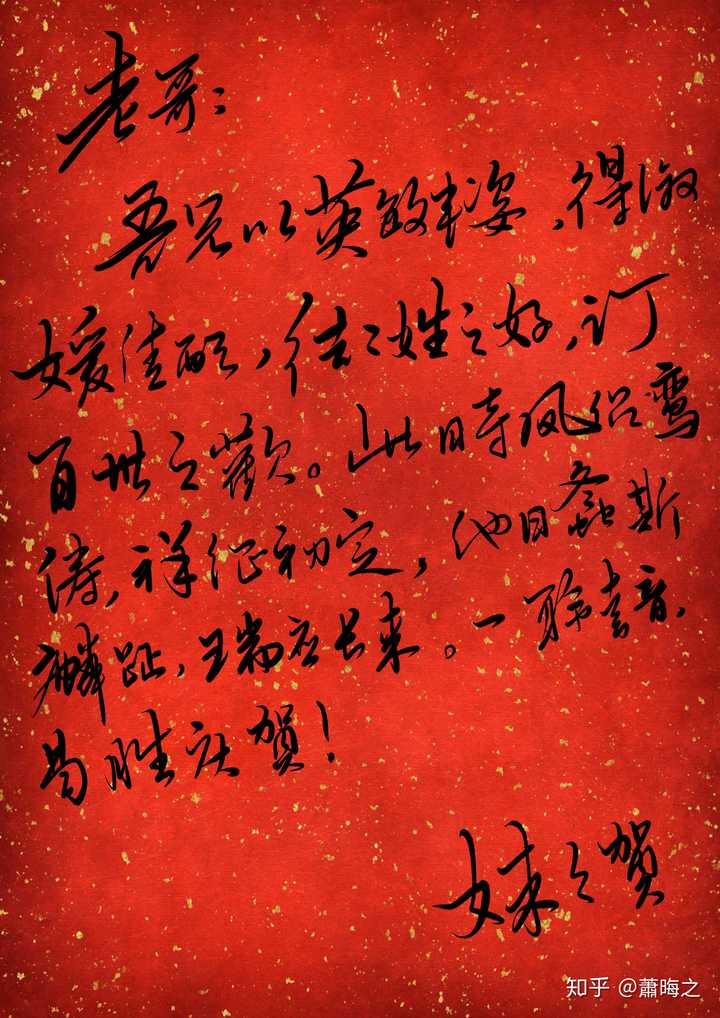 老哥：
吾兄以英敏丰姿，得淑
媛佳配，结二姓之好，订
百世之歡。此時凤侣鸾
俦，祥征初定，他日螽斯
麟趾，瑞应长来。一聆喜音，
曷胜庆賀！
妹々賀
知乎 @蕭晦之